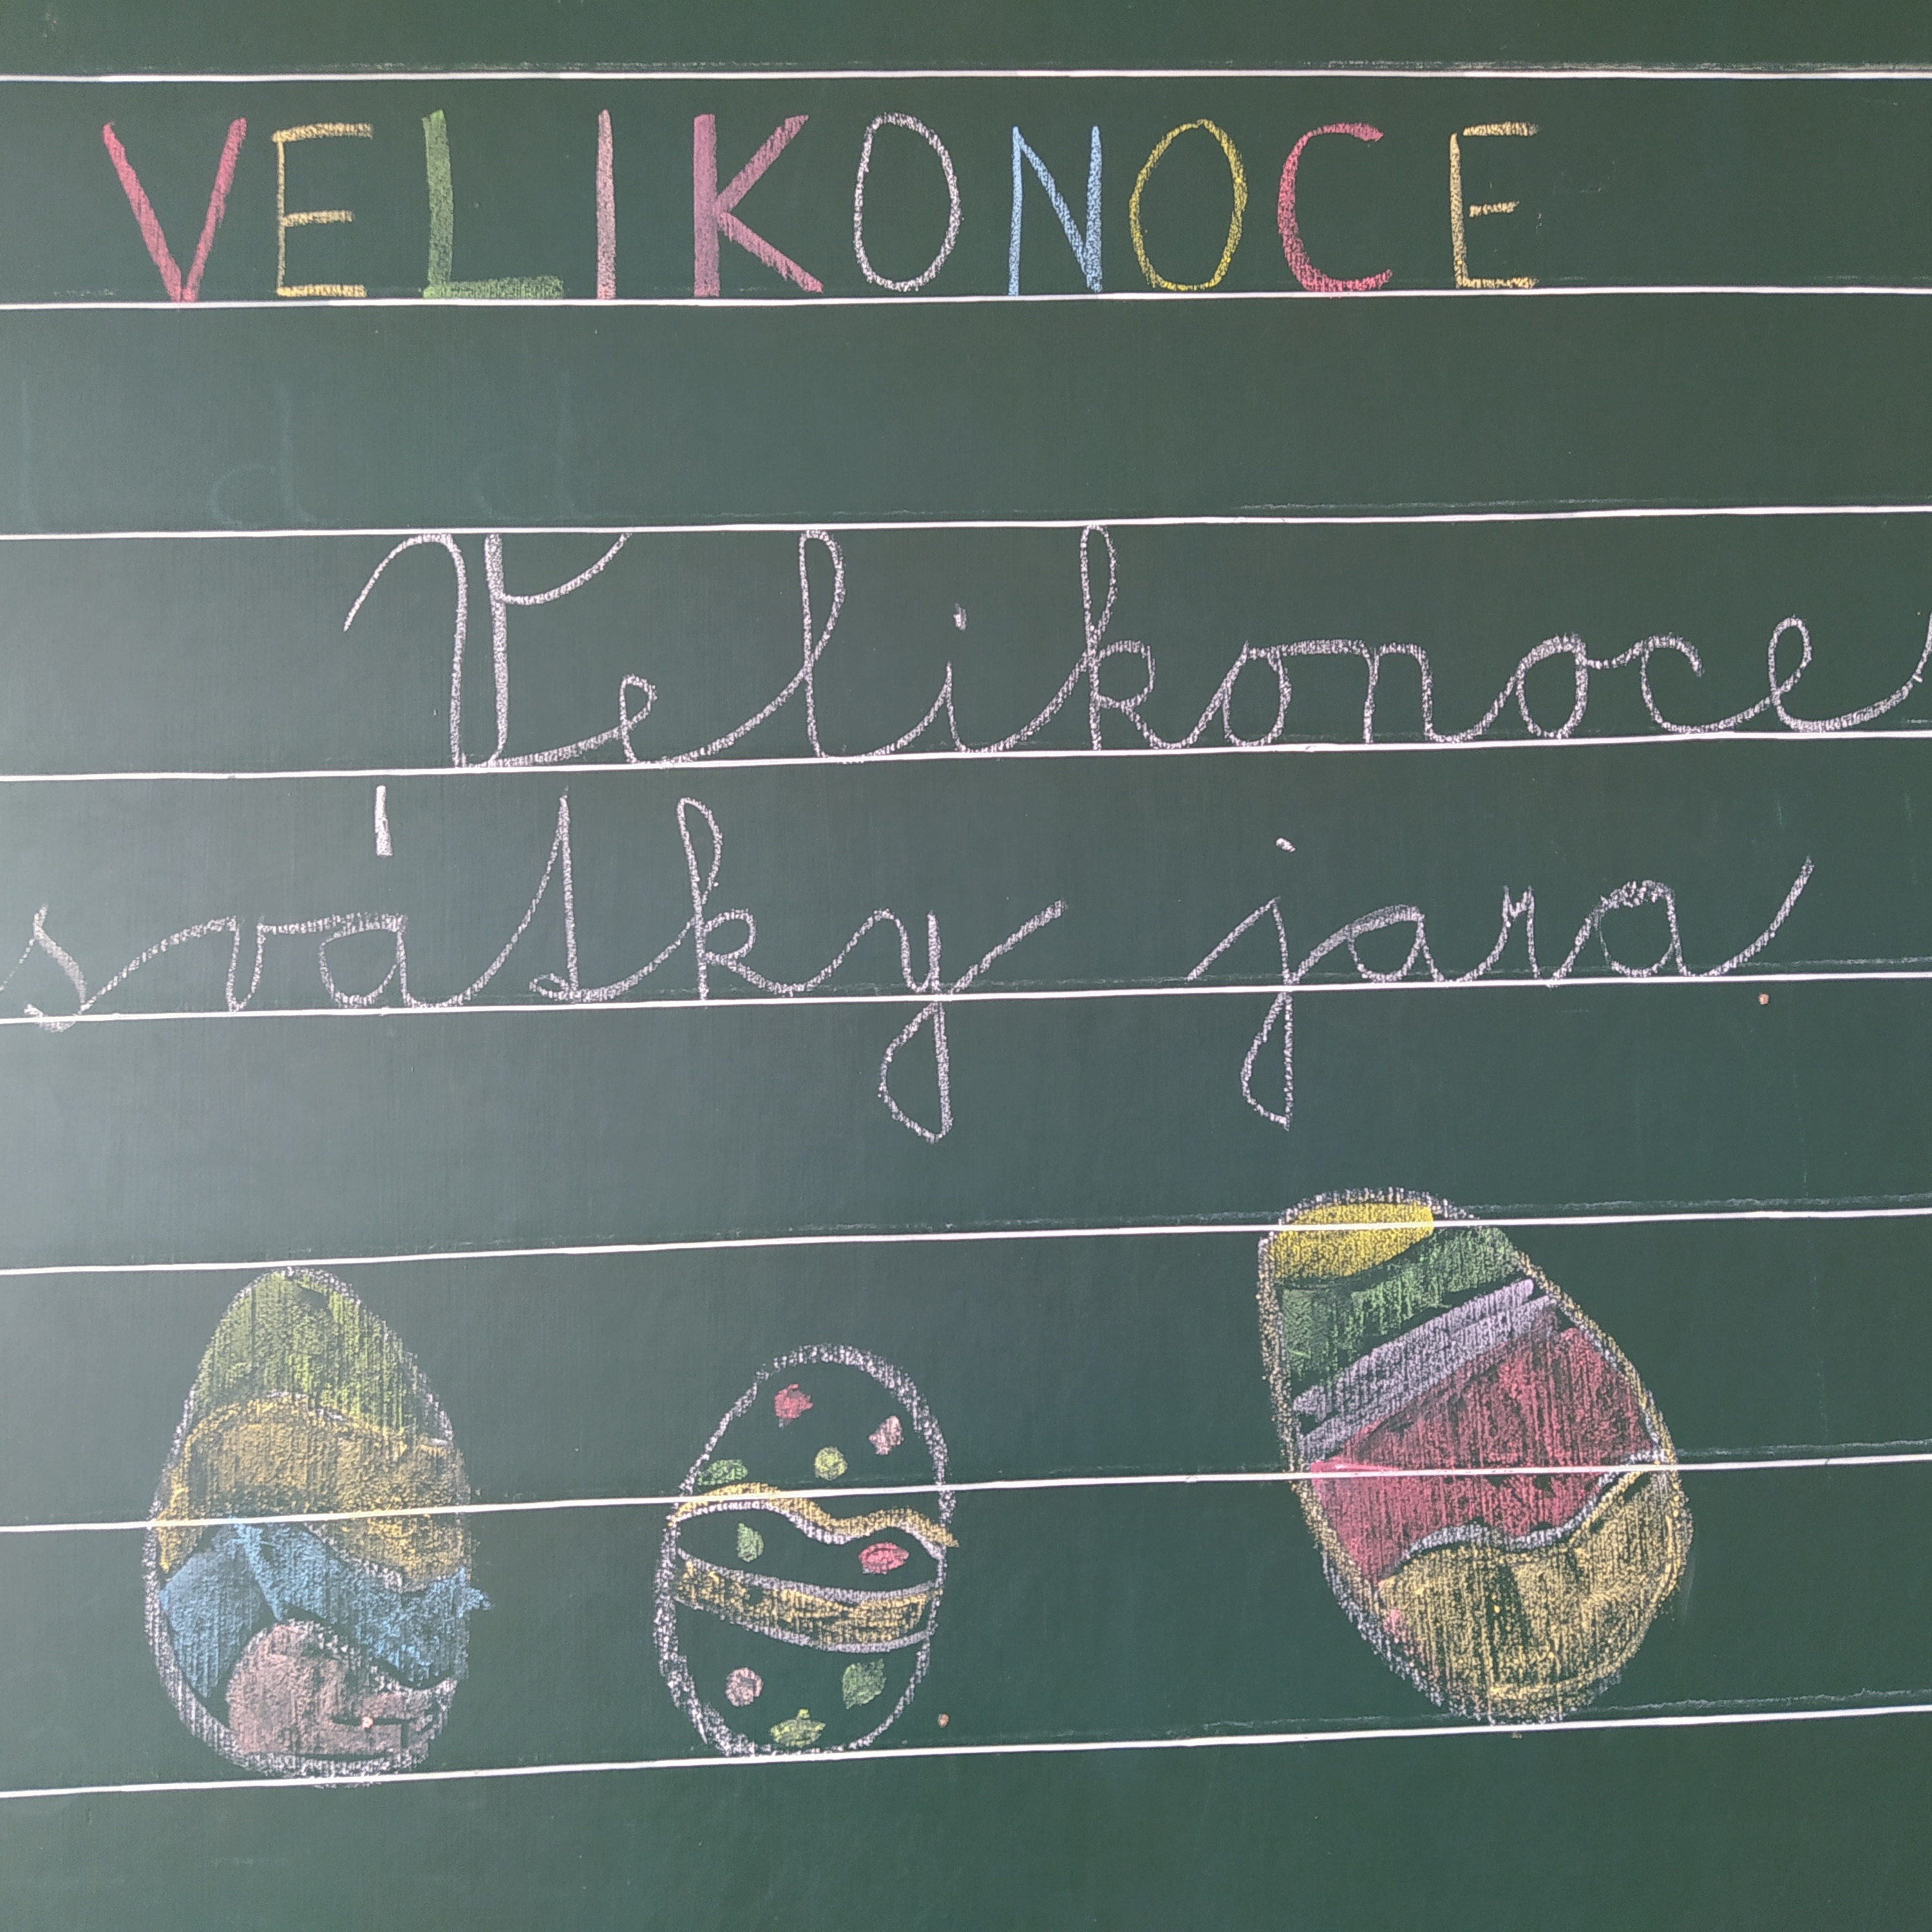 VELIKONOCE
Velikonoce
svátky jara